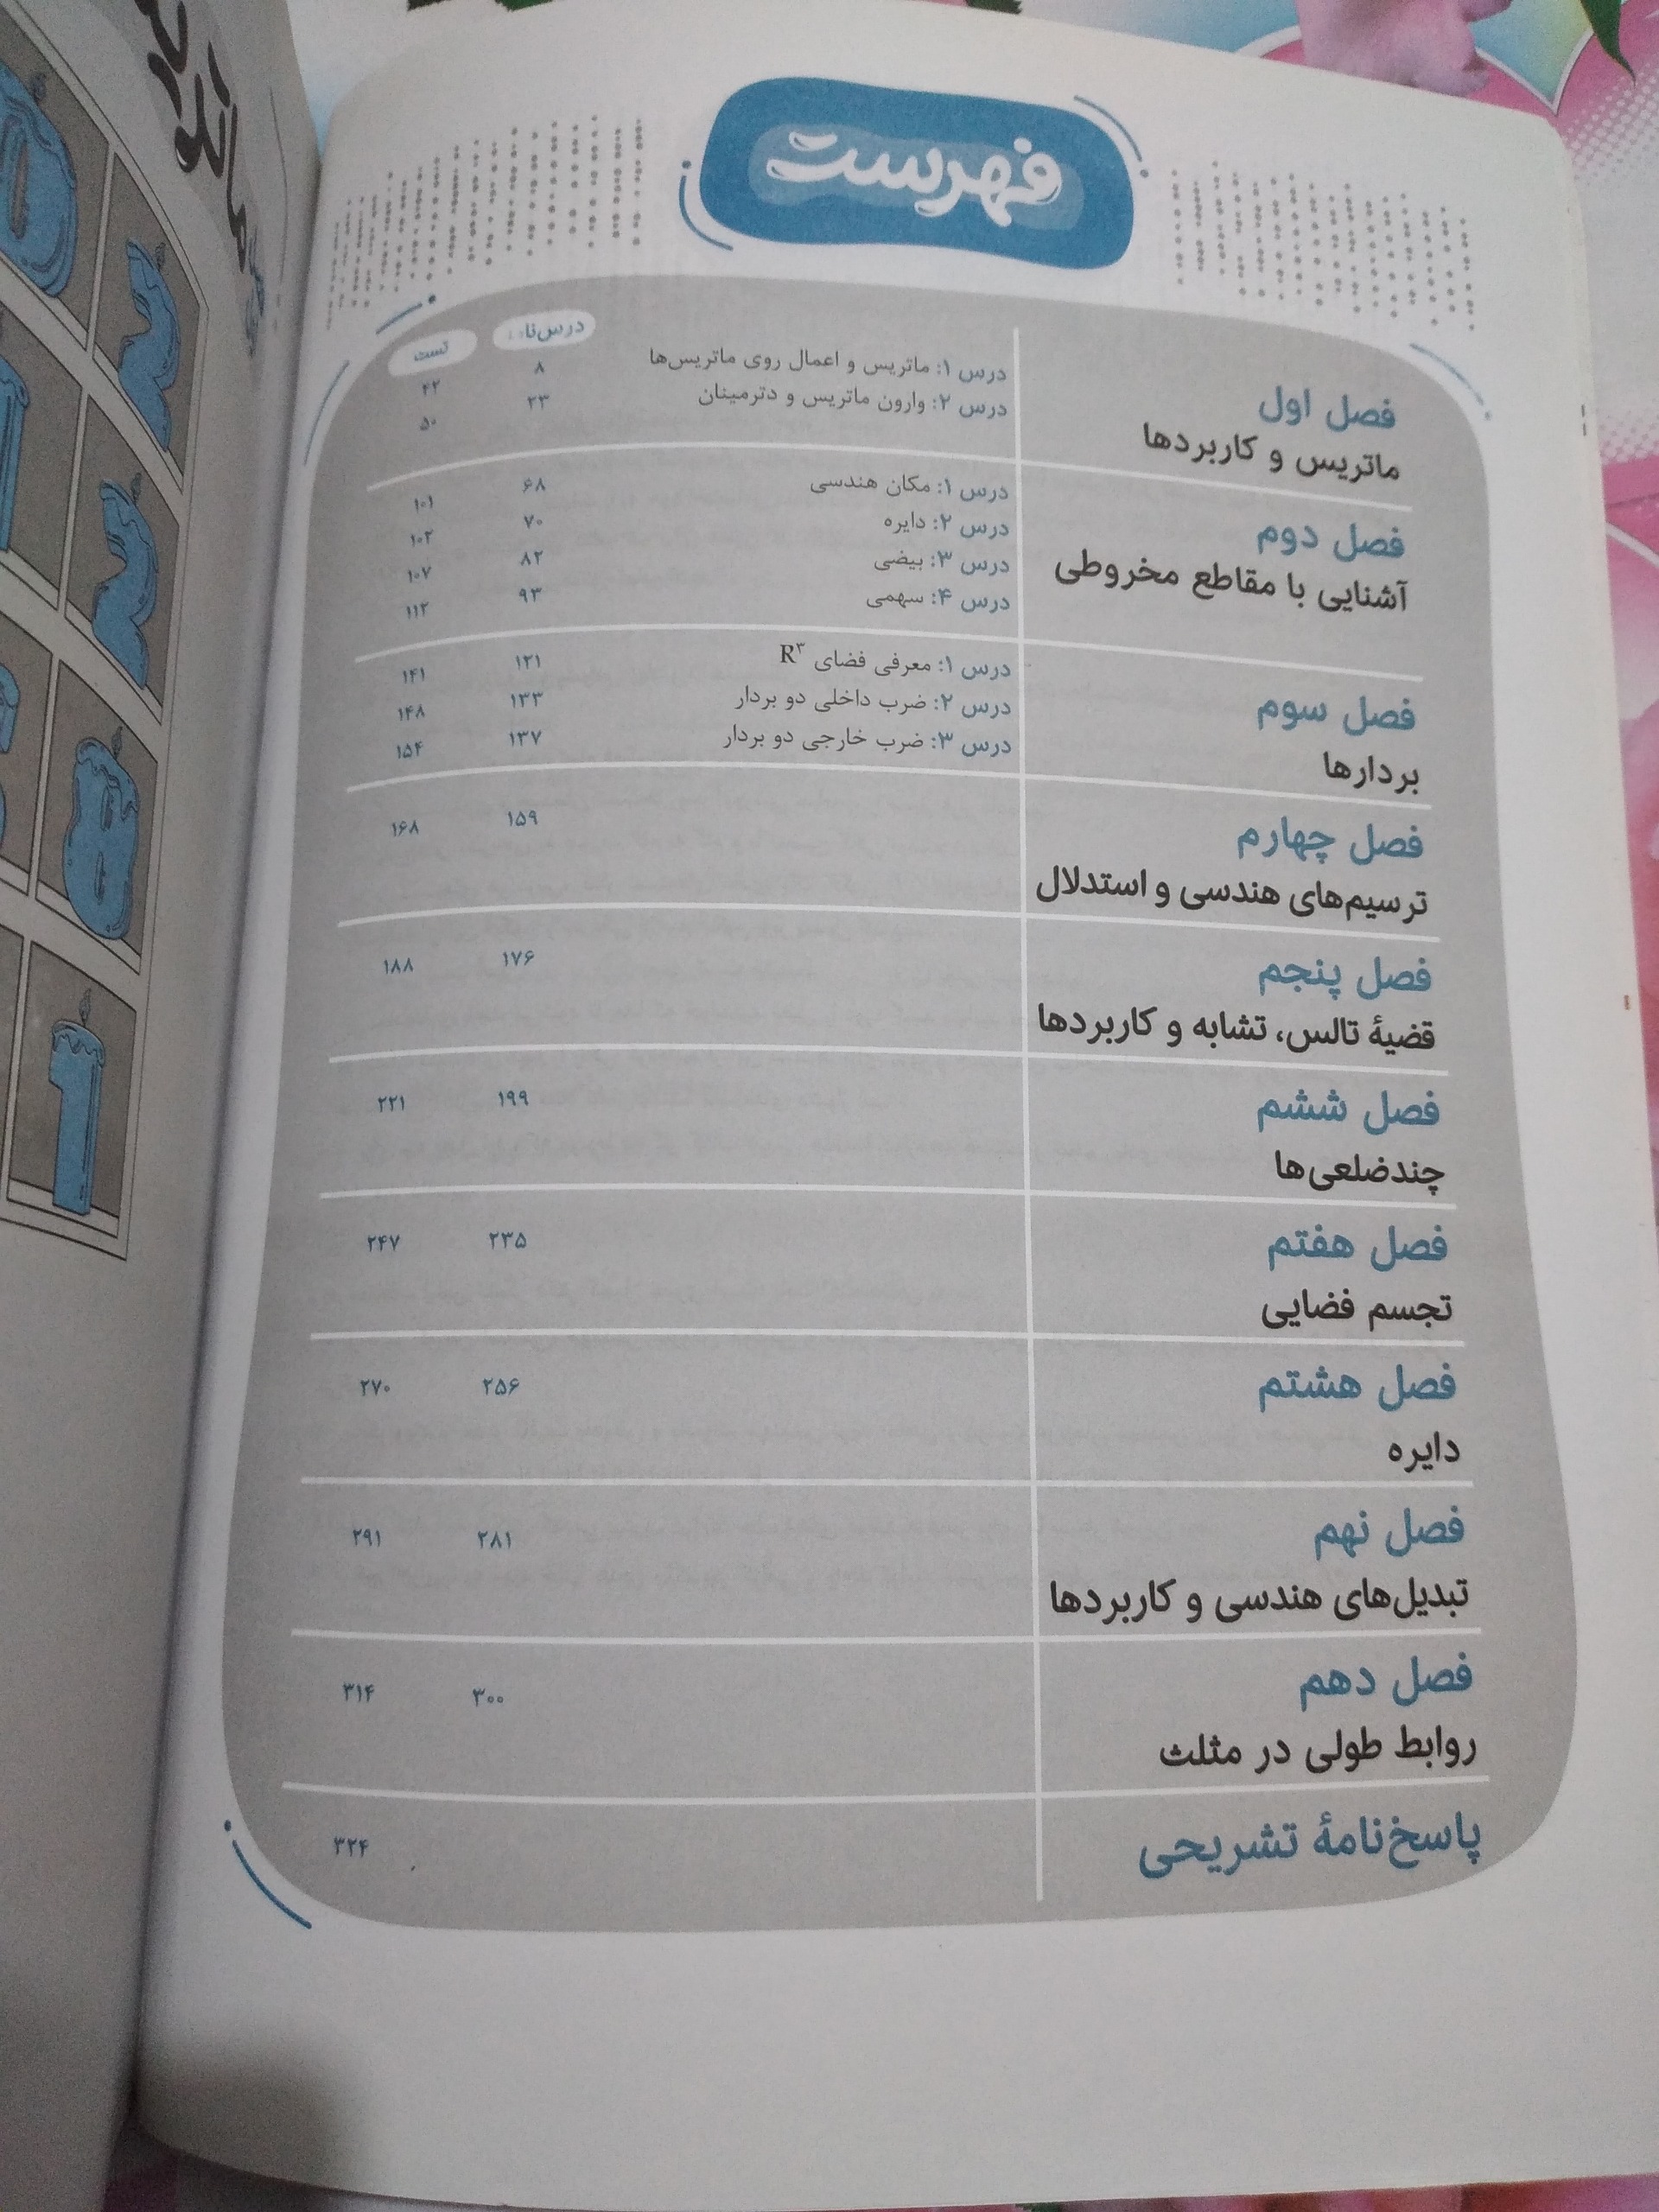 فهرست
درس‌نامه تست
فصل اول
ماتریس و کاربردها
درس ۱: ماتریس و اعمال روی ماتریس‌ها ۸ ۴۲
درس ۲: وارون ماتریس و دترمینان ۲۳ ۵۰
فصل دوم
آشنایی با مقاطع مخروطی
درس ۱: مکان هندسی ۶۸ ۱۰۱
درس ۲: دایره ۷۰ ۱۰۲
درس ۳: بیضی ۸۲ ۱۰۷
درس ۴: سهمی ۹۳ ۱۱۲
فصل سوم
بردارها
درس ۱: معرفی فضای R۳ ۱۲۱ ۱۴۱
درس ۲: ضرب داخلی دو بردار ۱۳۳ ۱۴۸
درس ۳: ضرب خارجی دو بردار ۱۳۷ ۱۵۴
فصل چهارم
ترسیم‌های هندسی و استدلال
۱۵۹ ۱۶۸
فصل پنجم
قضیۀ تالس، تشابه و کاربردها
۱۷۶ ۱۸۸
فصل ششم
چندضلعی‌ها
۱۹۹ ۲۲۱
فصل هفتم
تجسم فضایی
۲۳۵ ۲۴۷
فصل هشتم
دایره
۲۵۶ ۲۷۰
فصل نهم
تبدیل‌های هندسی و کاربردها
۲۸۱ ۲۹۱
فصل دهم
روابط طولی در مثلث
۳۰۰ ۳۱۴
پاسخ‌نامۀ تشریحی
۳۲۴